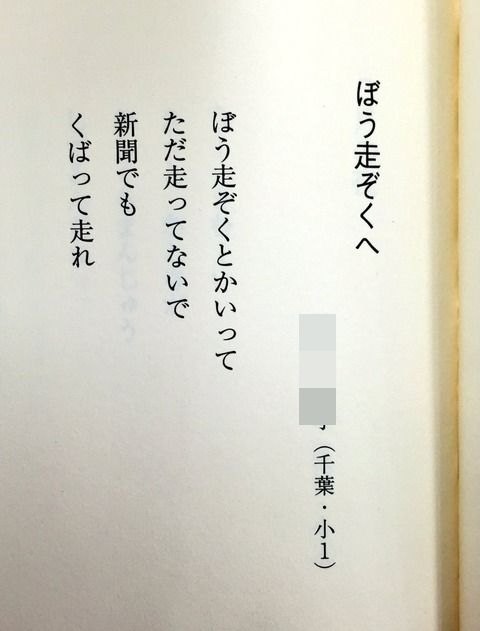 ぼう走ぞくへ
(千葉・小1)
ぼう走ぞくとかいって
ただ走ってないで
新聞でも
くばって走れ